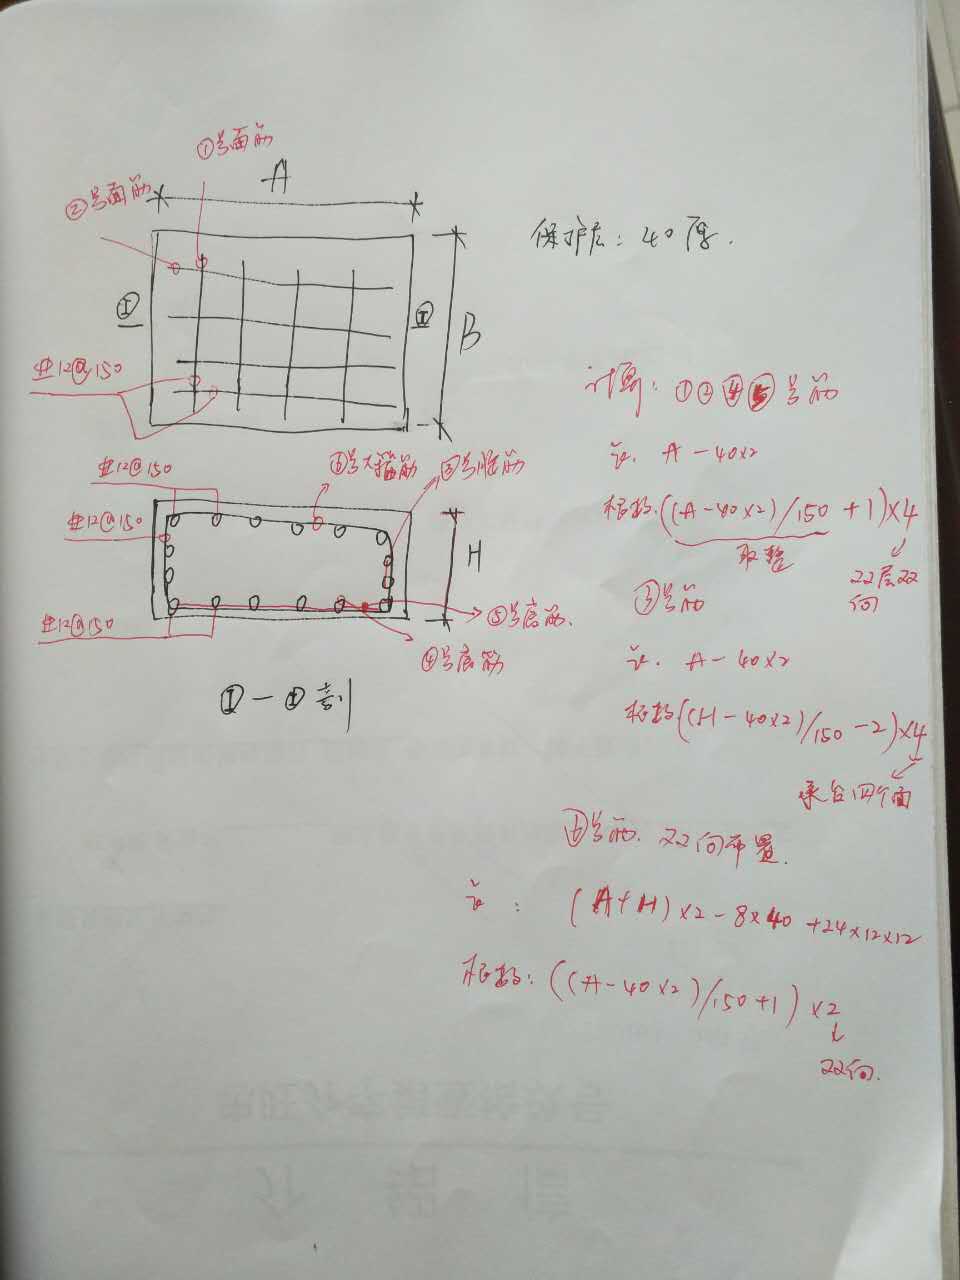 ①号面筋
A
②号面筋
保护层：40厚.
Ⅰ
Ⅰ
B
业12@150
计算：①②④⑤号筋
长. A-40×2
业12@150
⑥号大箍筋
③号腰筋
业12@150
根数.((A-40×2)/150+1)×4
取整
22层22
向
H
③号筋
业12@150
⑤号底筋.
④号底筋
长. A-40×2
Ⅰ—Ⅰ剖
根数((H-40×2)/150-2)×4
承台四个面
⑥号筋. 22向布置.
长： (A+H)×2-8×40+24×12×12
根数：((A-40×2)/150+1)×2
22向.